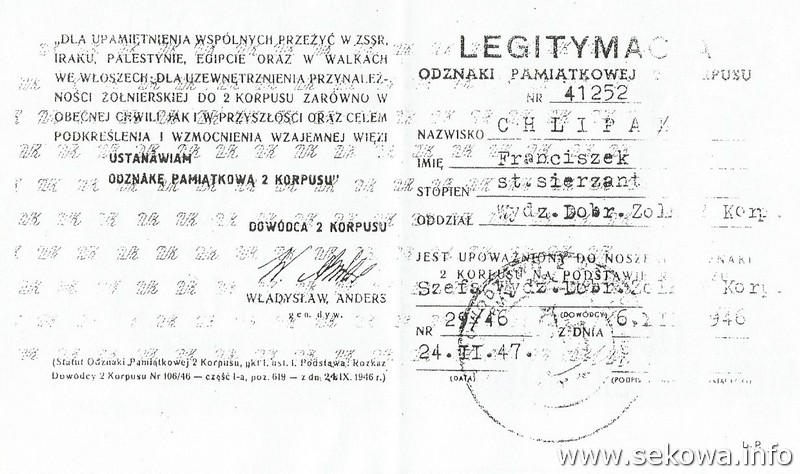 „DLA UPAMIĘTNIENIA WSPÓLNYCH PRZEŻYĆ W ZSSR,
IRAKU, PALESTYNIE, EGIPCIE ORAZ W WALKACH
WE WŁOSZECH, DLA UZEWNĘTRZNIENIA PRZYNALEŻ-
NOŚCI ŻOŁNIERSKIEJ DO 2 KORPUSU ZARÓWNO W
OBECNEJ CHWILI JAK I W PRZYSZŁOŚCI ORAZ CELEM
PODKREŚLENIA I WZMOCNIENIA WZAJEMNEJ WIĘZI
USTANAWIAM
ODZNAKĘ PAMIĄTKOWĄ 2 KORPUSU”
DOWÓDCA 2 KORPUSU
WŁADYSŁAW ANDERS
gen. dyw.
(Statut Odznaki Pamiątkowej 2 Korpusu, pkt 1, ust. 1. Podstawa: Rozkaz
Dowódcy 2 Korpusu Nr 106/46 — część I-a, poz. 619 — z dn. 24.IX. 1946 r.)
LEGITYMAC A
ODZNAKI PAMIĄTKOWEJ 2 KORPUSU
NR 41252
NAZWISKO CHLIPAK
IMIĘ Franciszek
STOPIEŃ st.sierżant
ODDZIAŁ Wydz.Dobr.Żoł. Korp.
JEST UPOWAŻNIONY DO NOSZENIA ODZNAKI
2 KORPUSU NA PODSTAWIE
Szefa Wydz.Dobr.Żoł. Korp.
(DOWÓDCY)
NR 29/46 Z DNIA 6. 1946
24.II.47.
(DATA)
www.sekowa.info